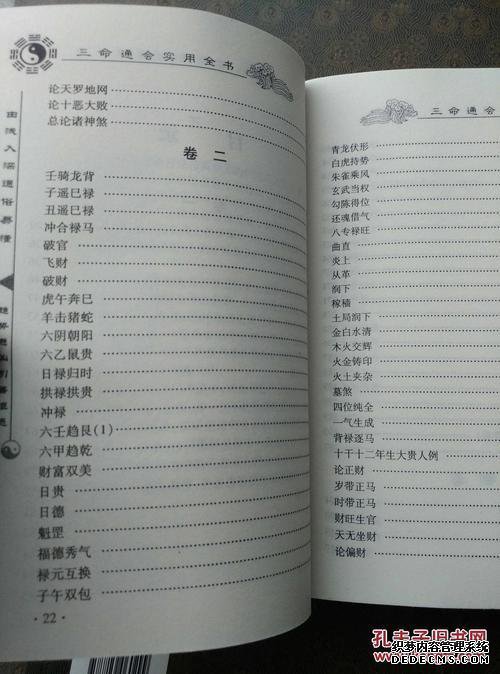 三命通会实用全书
论天罗地网
论十恶大败
总论诸神煞
卷二
壬骑龙背
子遥巳禄
丑遥巳禄
冲合禄马
破官
飞财
破财
虎午奔巳
羊击猪蛇
六阴朝阳
六乙鼠贵
日禄归时
拱禄拱贵
冲禄
六壬趋艮(1)
六甲趋乾
财富双美
日贵
日德
魁罡
福德秀气
禄元互换
子午双包
·22·
由浅入深通俗易懂
三命通会
青龙伏形
白虎持势
朱雀乘风
玄武当权
勾陈得位
还魂借气
八专禄旺
曲直
炎上
从革
润下
稼穑
土局润下
金白水清
木火交辉
火金铸印
火土夹杂
墓煞
四位纯全
一气生成
背禄逐马
十干十二年生大贵人例
论正财
岁带正马
时带正马
财旺生官
天无坐财
论偏财
孔夫子旧书网
织梦内容管理系统
DEDECMS.COM